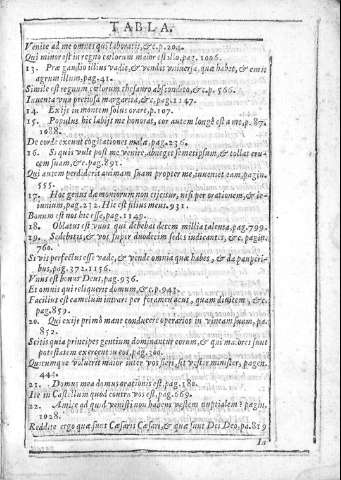 TABLA.
Venite ad me omnes qui laboratis, &c. p. 204.
Qui minor est in regno cœlorum maior est illo, pag. 1006.
13. Præ gaudio illius vadit, & vendit vniuersa, quæ habet, & emit
agrum illum, pag. 41.
Simile est regnum cœlorum thesauro abscondito, & c. p. 566.
Inuenta vna preciosa margarita, & c. pag. 1147.
14. Exijt in montem solus orare, p. 107.
15. Populus hic labijs me honorat, cor autem longè est a me, p. 87.
1088.
De corde exeunt cogitationes malæ, pag. 236.
16. Si quis vult post me venire, abneget semetipsum, & tollat cru-
cem suam, & c. pag. 891.
Qui autem perdiderit animam suam propter me, inueniet eam, pagin.
555.
17. Hoc genus dæmoniorum non eijcitur, nisi per orationem, & ie-
iunium, pag. 232. Hic est filius meus. 931.
Bonum est nos hic esse, pag. 1149.
18. Oblatus est vnus qui debebat decem millia talenta, pag. 799.
29. Sedebitis, & vos super duodecim sedes iudicantes, & c. pagin.
760.
Si vis perfectus esse vade, & vende omnia quæ habes, & da pauperi-
bus, pag. 372. 1156.
Vnus est bonus Deus, pag. 936.
Et omnis qui reliquerit domum, & c. p. 943.
Facilius est camelum intrare per foramen acus, quam diuitem, & c.
pag. 859.
20. Qui exijt primò manè conducere operarios in vineam suam, pa.
852.
Scitis quia principes gentium dominantur eorum, & qui maiores sunt
potestatem exercent in eos, pag. 300.
Quicumque voluerit maior inter vos fieri, sit vester minister, pagin.
441.
21. Domus mea domus orationis est, pag. 380.
Ite in Castellum quod contra vos est, pag. 669.
22. Amice ad quid venisti non habens vestem nuptialem? pagin.
1028.
Reddite ergo quæ sunt Cæsaris Cæsari, & quæ sunt Dei Deo, pa. 819
In